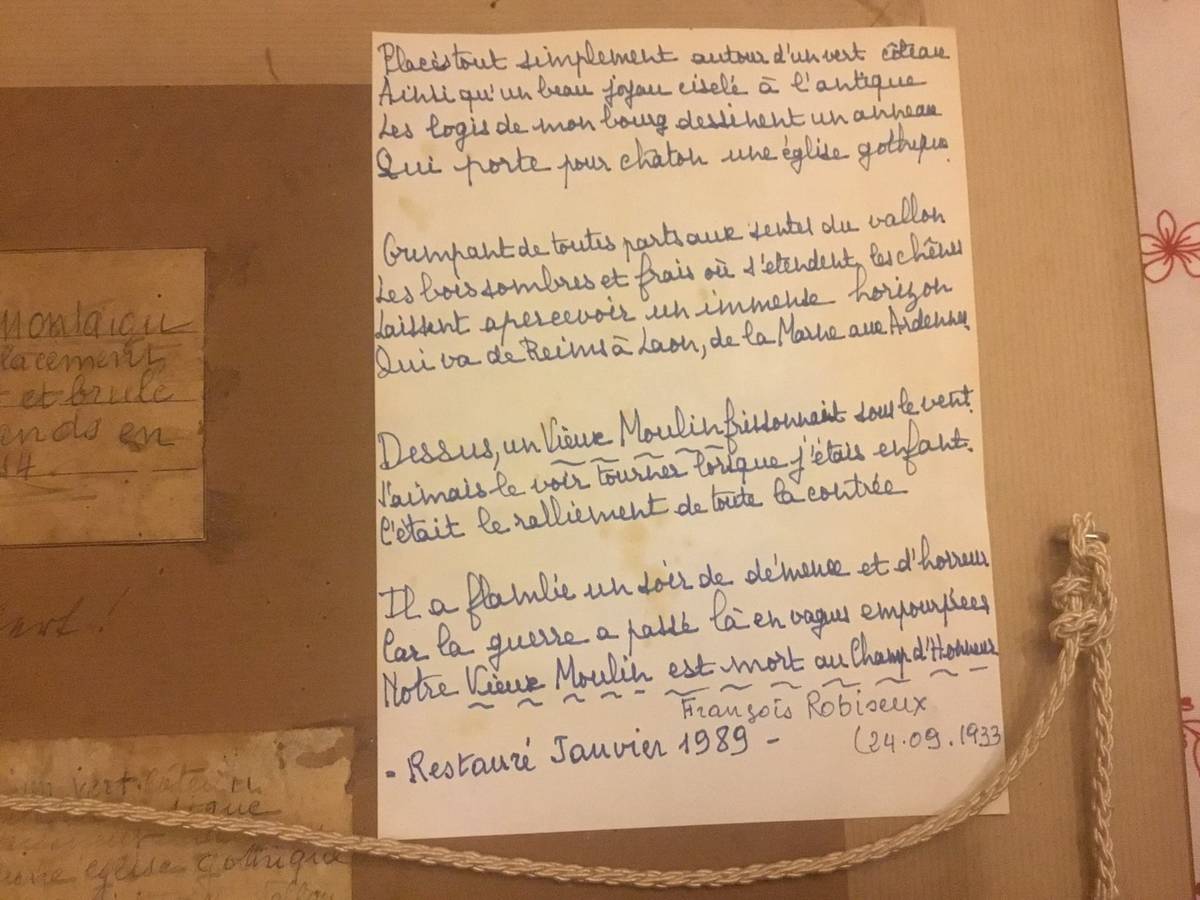 Placés tout simplement autour d'un vert côteau
Ainsi qu'un beau joyau ciselé à l'antique
Les logis de mon bourg dessinent un anneau
Qui porte pour chaton une église gothique.
Grimpant de toutes parts aux sentes du vallon
Les bois sombres et frais où s'étendent les chênes
Laissent apercevoir un immense horizon
Qui va de Reims à Laon, de la Marne aux Ardennes
Dessus, un Vieux Moulin frissonnait sous le vent.
J'aimais le voir tourner lorsque j'étais enfant.
C'était le ralliement de toute la contrée
Il a flambé un soir de démence et d'horreur
Car la guerre a passé là en vagues empourprées
Notre Vieux Moulin est mort au Champ d'Honneur
François Robiseux
- Restauré Janvier 1989 -
(24.09.1933
Montaigu
lacement
et brulé
ands en
14
vert !
un vert
tique
une église gothique